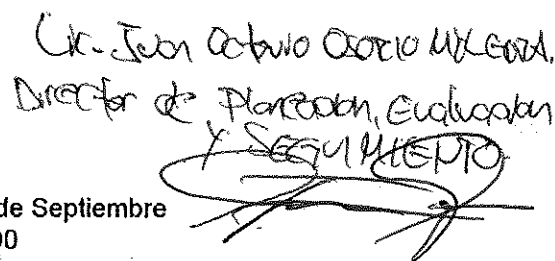 Lic. Juan Octavio Osorio
Director de Planeación, Evaluación
Y SEGUIMIENTO
de Septiembre
00